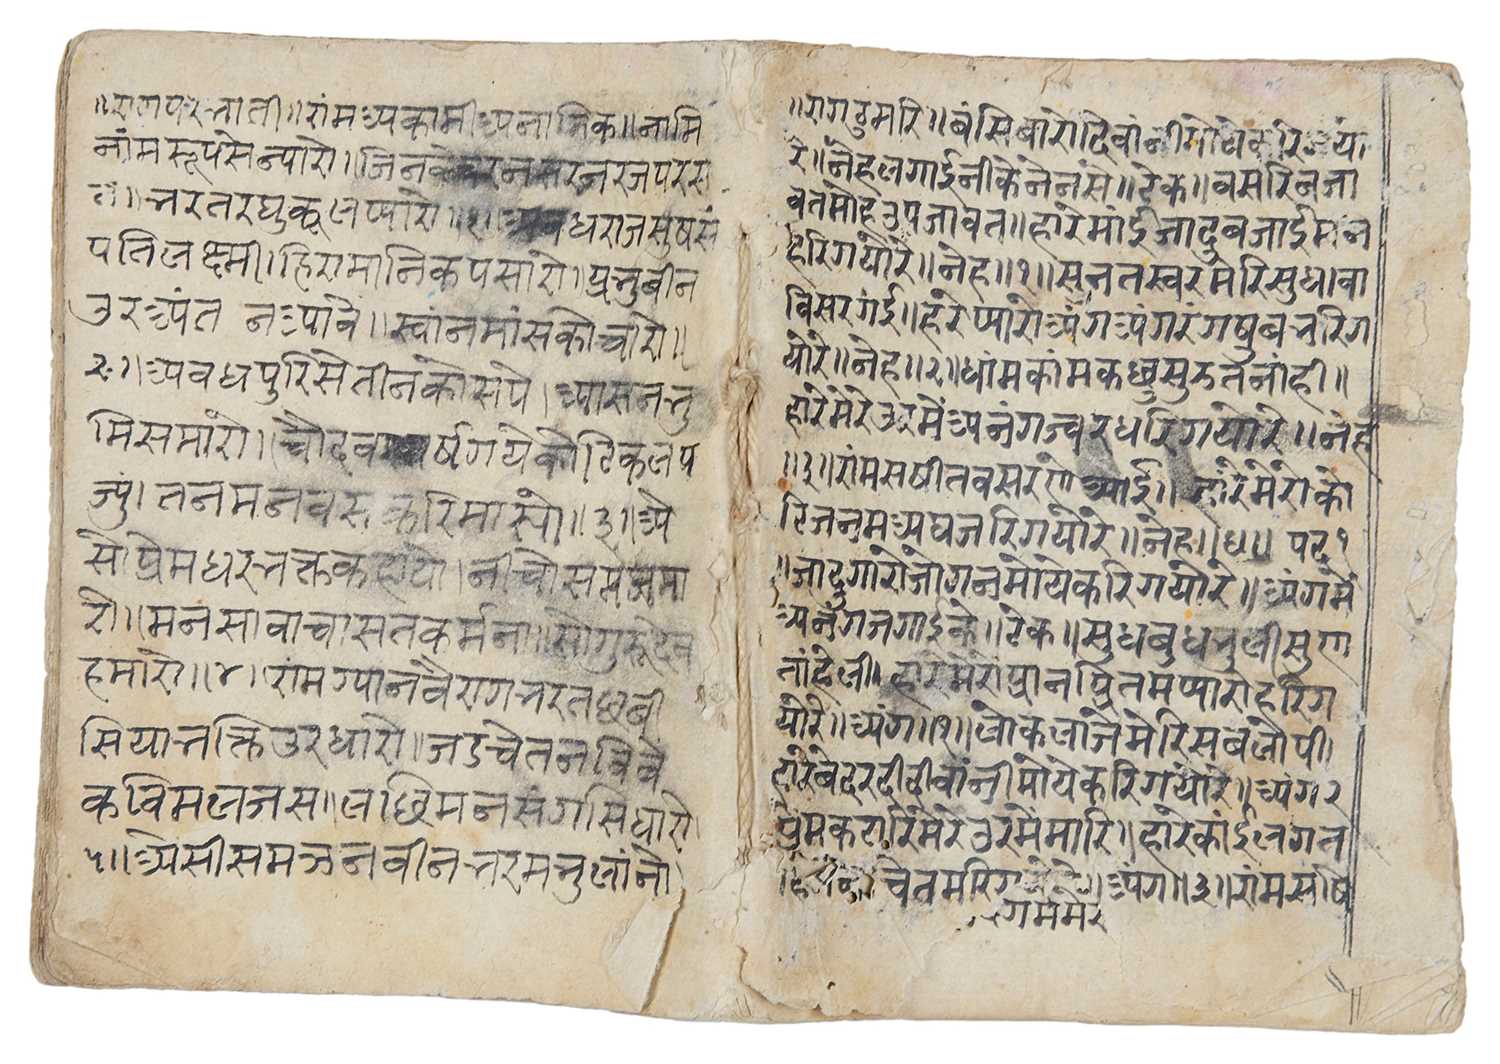 ॥राग परभाती॥रांम अकामी अनामिक॥नामि
नांम सरूप से न्यारो॥जिनके रज परस
त॥भरत रघुकूल प्यारो॥१॥अवधराज सुष सं
पति लक्ष्मी।हिरा मानिक पसारो।प्रभु बीन
उर अंत न आवे॥स्वांन मांस को चारो॥
२॥अवध पुरि सें तीन कोस पे।आसन भु
मि समारो॥चौद वर्ष गये कोटि कलप
ज्युं।तन मन वस करि मार्यो॥३॥अे
सो प्रेम धर भक्त कहायो।नीचो
रो॥मनसा वाचा सत कर्मना॥सो गुरूदेव
हमारो॥४॥रांम ग्यान वैराग भरत छबी
सिया भक्ति उर धारो॥जड चेतन विवे
क विमल जस॥लछिमन संग सिधारो
५॥अेसी समऊन वीन भरम भुलांनो
॥राग ठुमरि॥बंसिबारो दिवांनी मोये करि गयो
रे॥नेह लगाई नीके नेंन सें॥टेक॥वसरि न जा
वत मोह उपजावत॥हारे मांई जादु बजाई मन
हरि गयो रे॥नेह॥१॥सुनत स्वर मेरि सुध वा
विसर गई॥हां रे प्यारो अंग अंग रग षुब भरि ग
यो रे॥नेह॥२॥धांम कांम कछु सुऊत नांही॥
हारे मेरे उर में अनंग ज्वर धरि गयो रे॥नेह
॥३॥रांमसषी तव सरणे आई॥हारे मेरो को
टि जनम अघ जरि गयो रे॥नेह॥४॥ पद १
॥जादुगारो जोगन मोये करि गयो रे॥अंग में
अनंग जगाई के॥टेक॥सुध बुध भुली सुण
नांहेली॥हारे मेरो प्रान प्रितम प्यारो हरि ग
यो रे॥अंग॥१॥लोक लाज मेरि सब लोपी।
हारे बेदरदी दीवांनी मोये करि गयो रे॥अंग २
प्रेम कटारि मेरे उर में मारि॥हां रे कांई लगत
चेत मरि अंग॥३॥रांमसषि